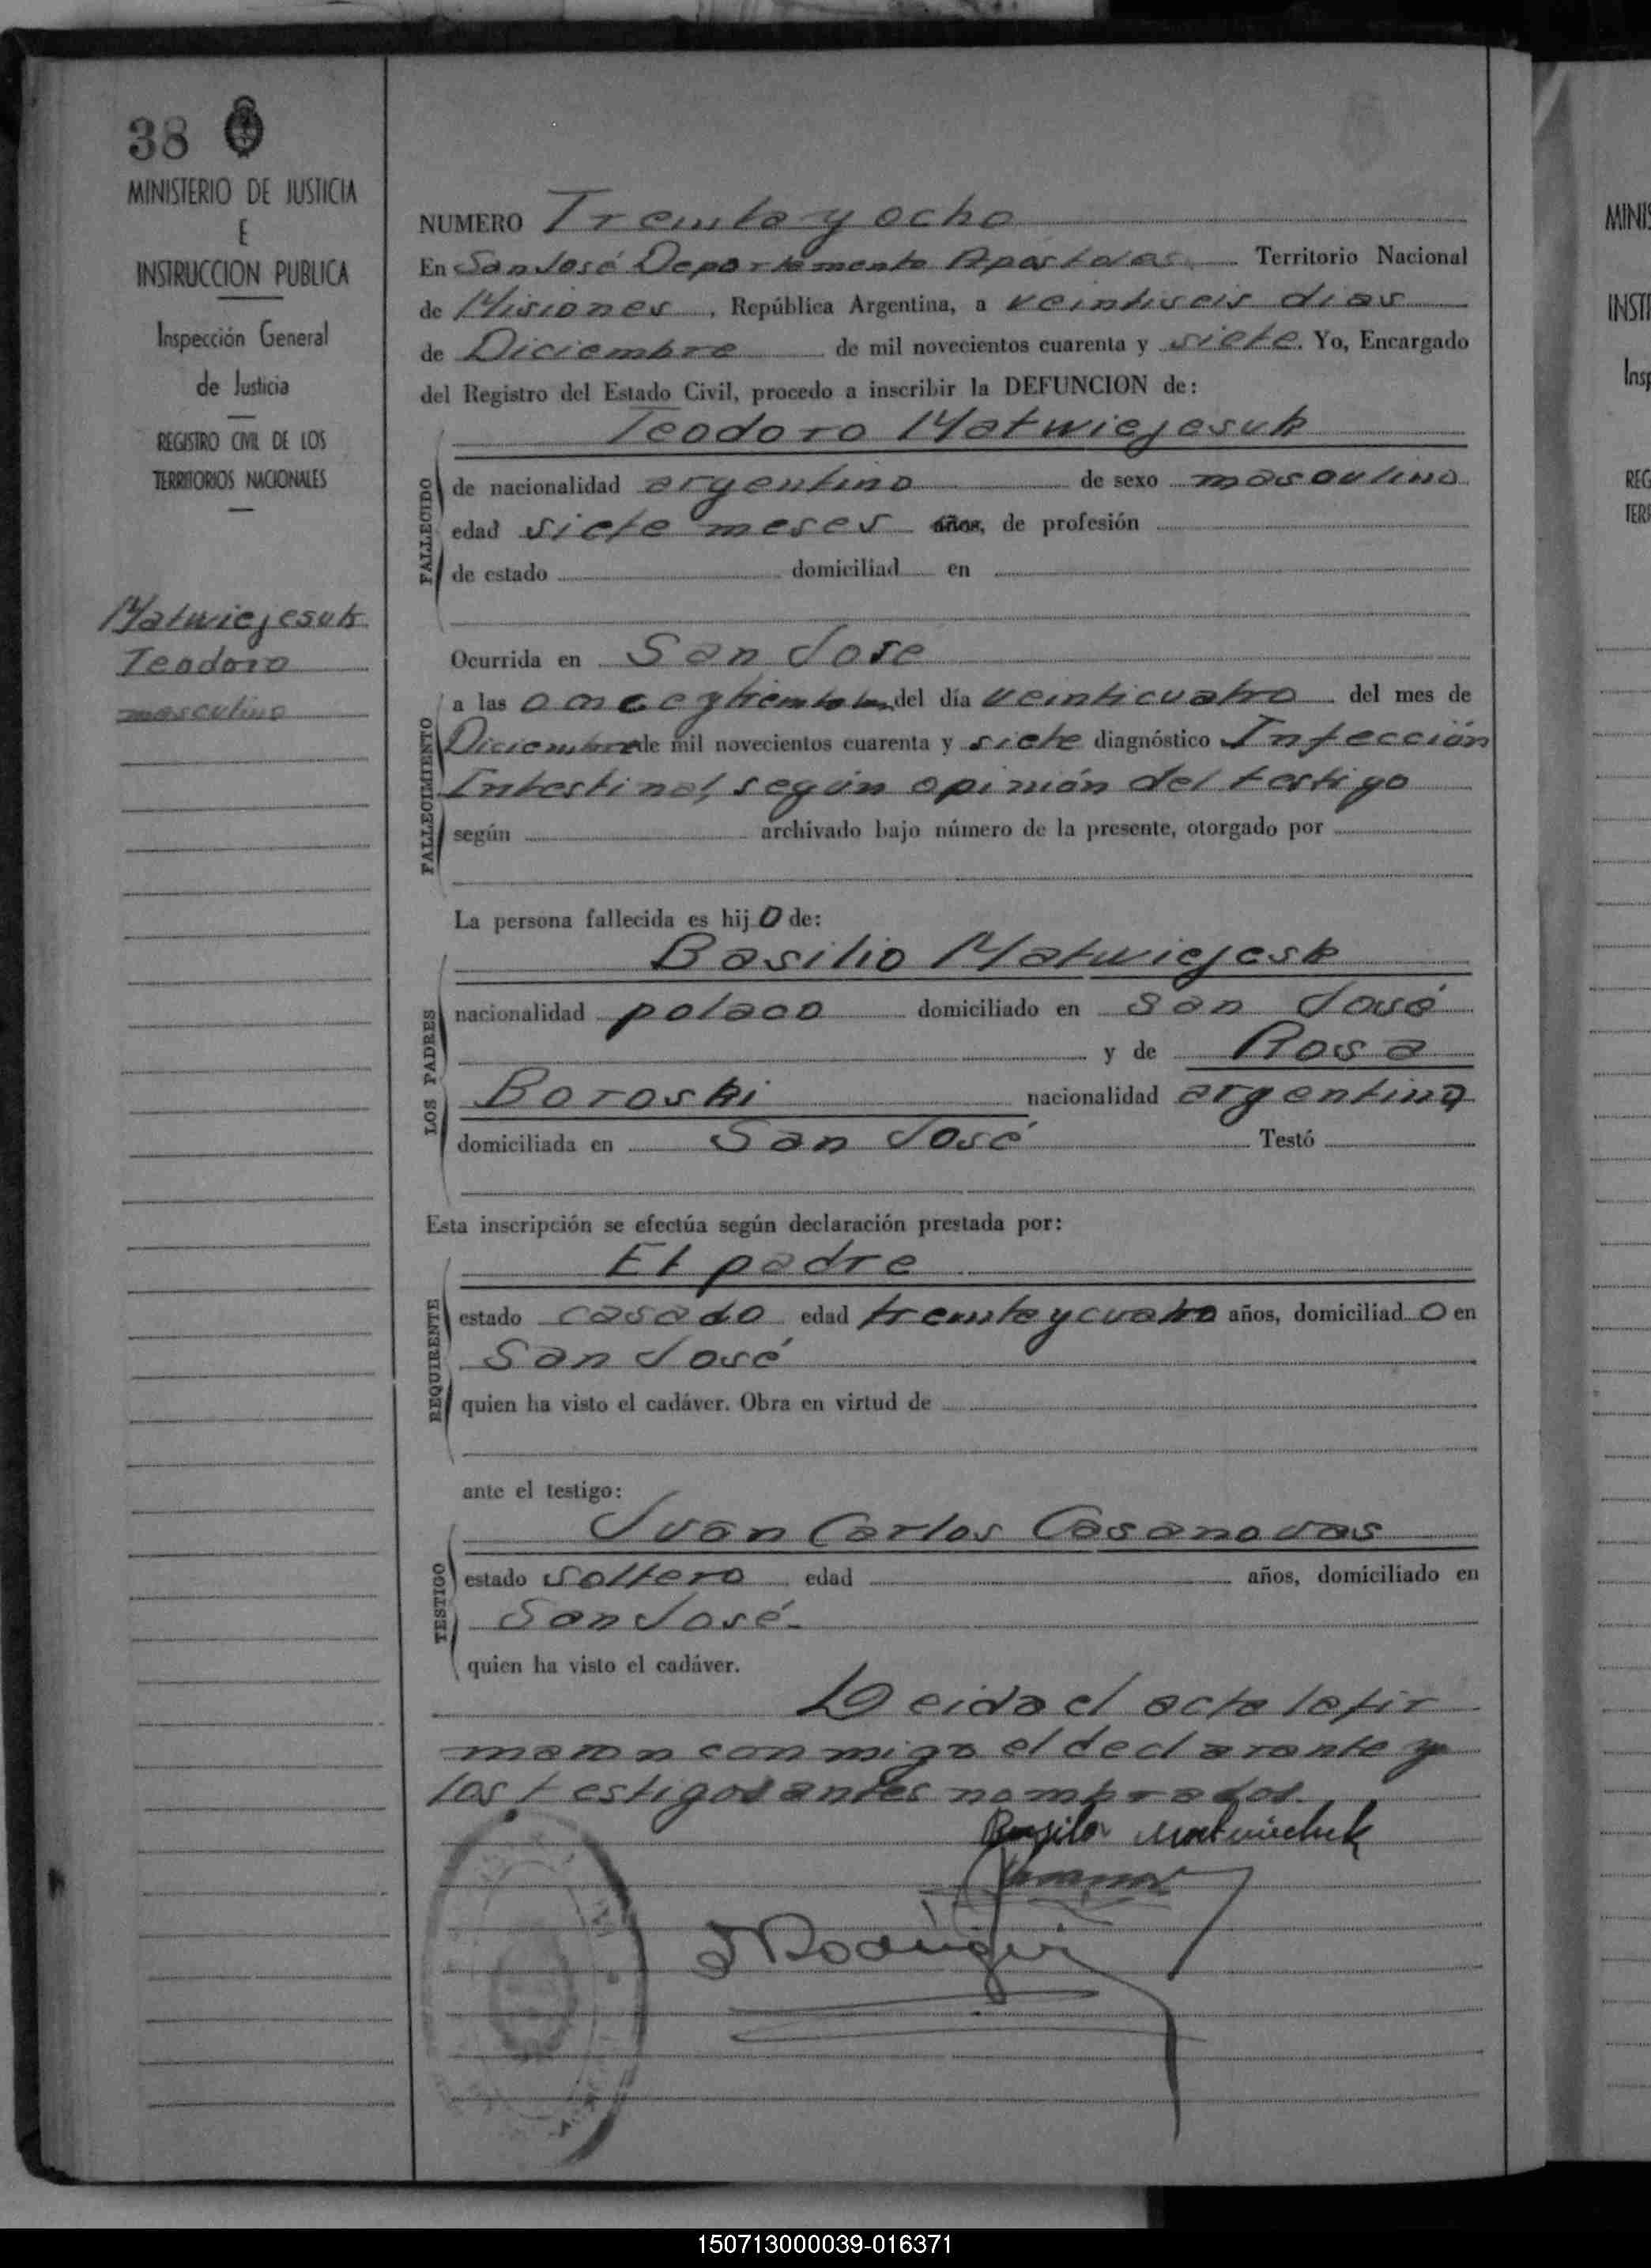 38
MINISTERIO DE JUSTICIA
E
INSTRUCCION PUBLICA
Inspección General
de Justicia
REGISTRO CIVIL DE LOS
TERRITORIOS NACIONALES
Matwiejesuk
Teodoro
masculino
NUMERO Treinta y ocho
En San José Departamento Apóstoles Territorio Nacional
de Misiones, República Argentina, a veintiseis dias
de Diciembre de mil novecientos cuarenta y siete. Yo, Encargado
del Registro del Estado Civil, procedo a inscribir la DEFUNCION de:
Teodoro Matwiejesuk
FALLECIDO
de nacionalidad argentino de sexo masculino
edad siete meses años, de profesión
de estado domiciliad en
Ocurrida en San Jose
FALLECIMIENTO
a las once y treinta del día veinticuatro del mes de
Diciembre de mil novecientos cuarenta y siete diagnóstico Infección
Intestinal, según opinión del testigo
según archivado bajo número de la presente, otorgado por
La persona fallecida es hijo de:
LOS PADRES
Basilio Matwiejesk
nacionalidad polaco domiciliado en San José
y de Rosa
Boroski nacionalidad argentina
domiciliada en San José Testó
Esta inscripción se efectúa según declaración prestada por:
REQUIRENTE
El padre
estado casado edad treinta y cuatro años, domiciliado en
San José
quien ha visto el cadáver. Obra en virtud de
ante el testigo:
TESTIGO
Juan Carlos Casanovas
estado soltero edad años, domiciliado en
San José.
quien ha visto el cadáver.
Leida el acta la fir
maron conmigo el declarante y
los testigos antes nombrados.
Basilio Matwiechuk
MINIS
INSTI
Insp
REG
TERR
150713000039-016371